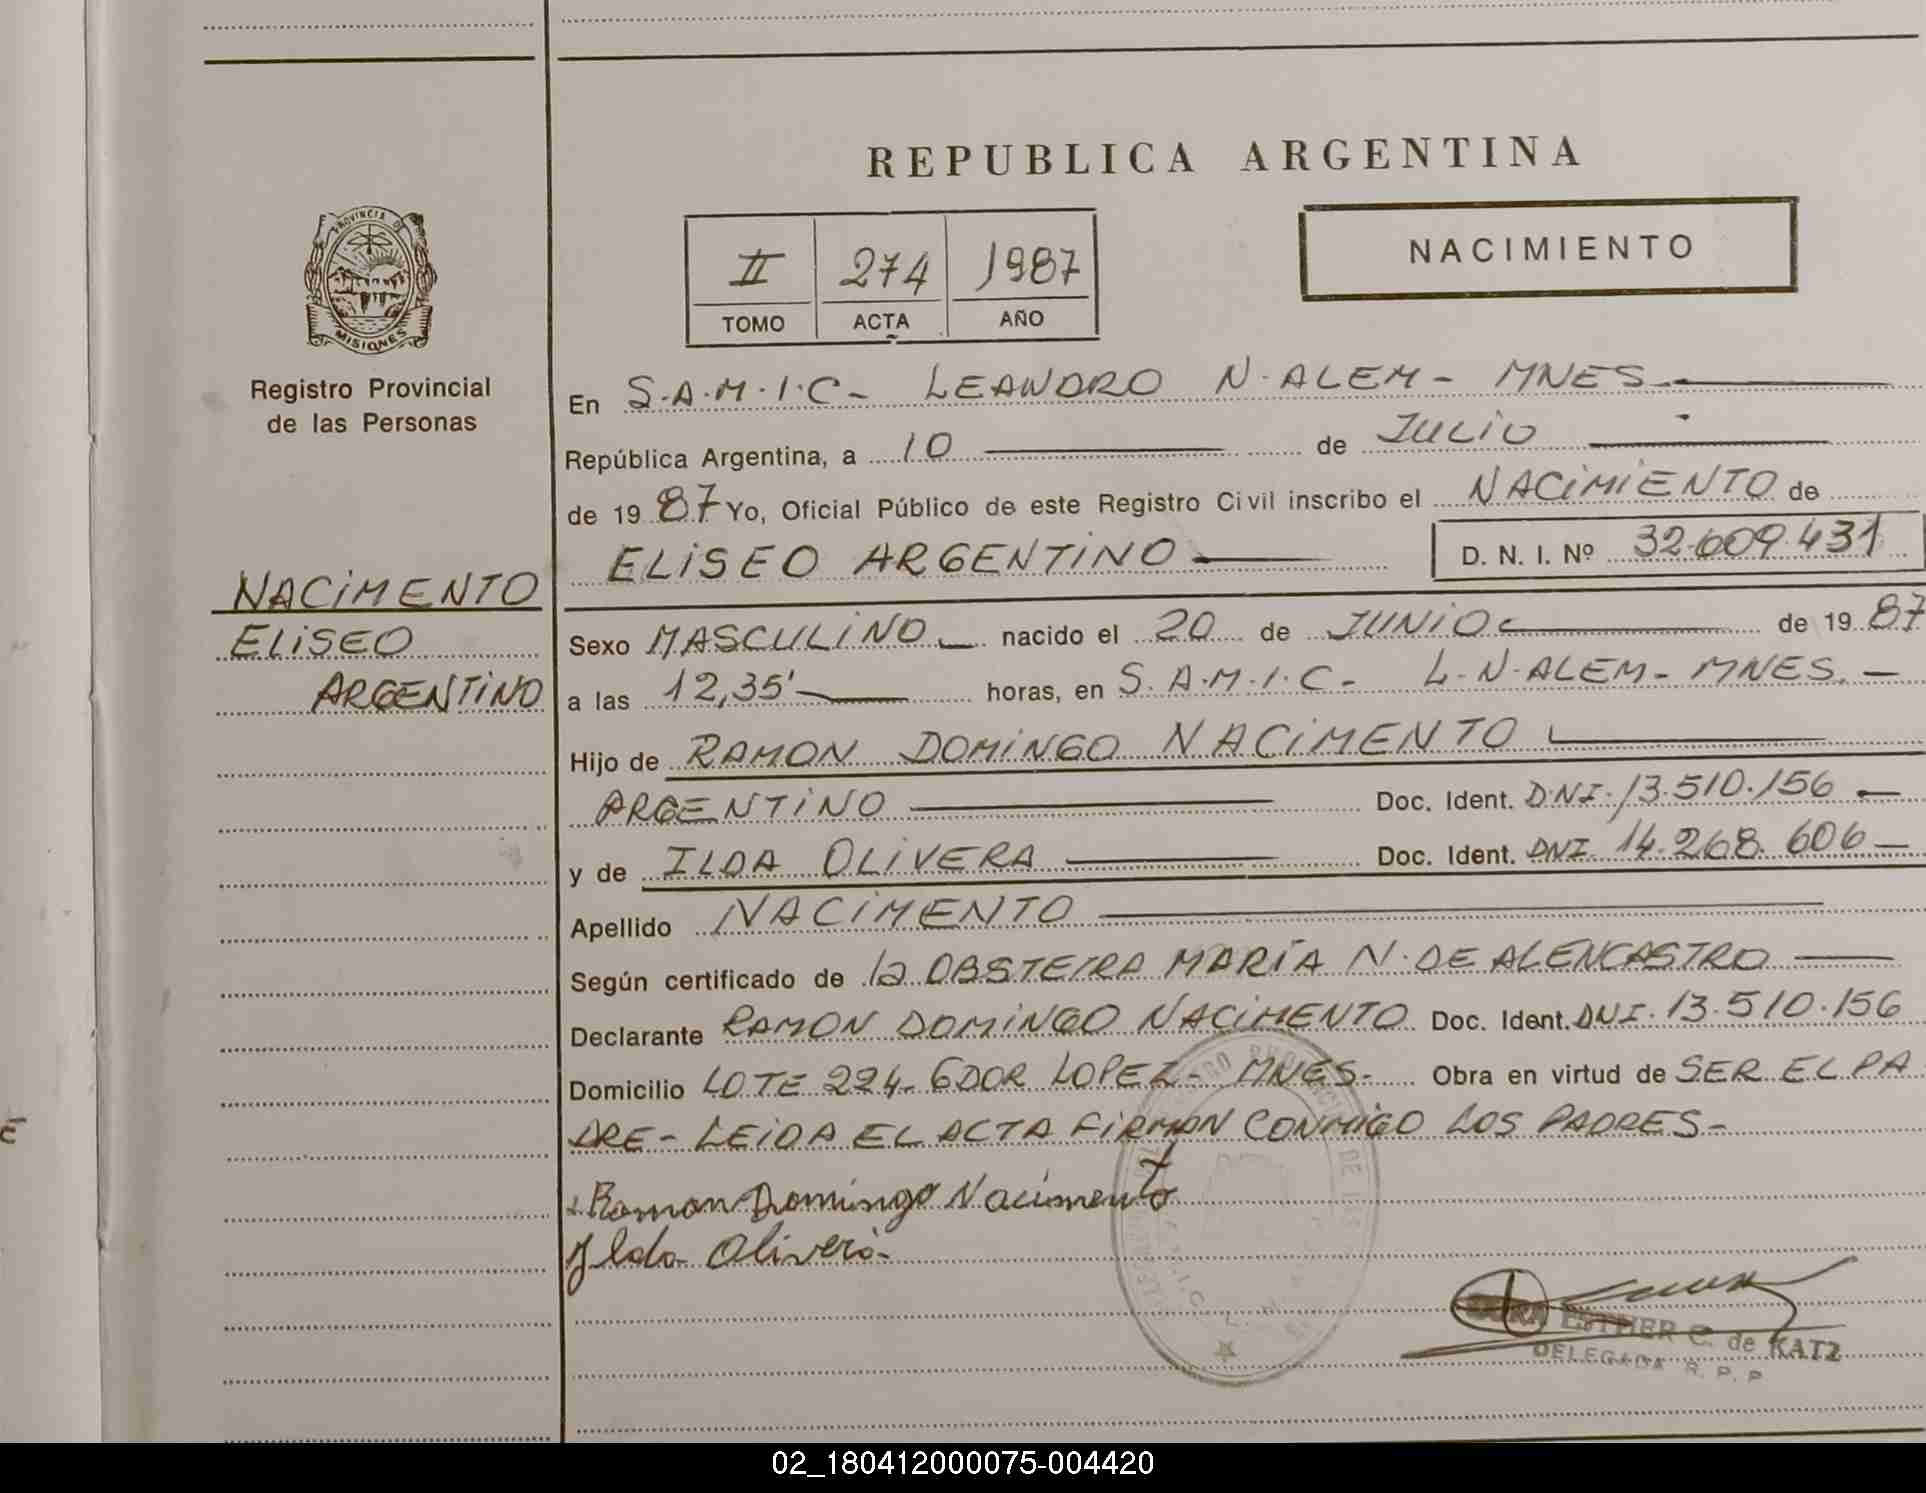 REPUBLICA ARGENTINA
NACIMIENTO
II 274 1987
TOMO ACTA AÑO
PROVINCIA DE
MISIONES
Registro Provincial
de las Personas
NACIMENTO
ELISEO
ARGENTINO
En S.A.M.I.C- LEANDRO N. ALEM- MNES
República Argentina, a 10 de JULIO
de 1987 Yo, Oficial Público de este Registro Civil inscribo el NACIMIENTO de
ELISEO ARGENTINO D. N. I. Nº 32.609.431
Sexo MASCULINO nacido el 20 de JUNIO de 1987
a las 12,35' horas, en S.A.M.I.C- L.N.ALEM- MNES.-
Hijo de RAMON DOMINGO NACIMENTO
ARGENTINO Doc. Ident. DNI. 13.510.156
y de ILDA OLIVERA Doc. Ident. DNI 14.268.606
Apellido NACIMENTO
Según certificado de la OBSTETRA MARÍA N. DE ALENCASTRO
Declarante RAMON DOMINGO NACIMENTO Doc. Ident. DNI. 13.510.156
Domicilio LOTE 224- GDOR LOPEZ- MNES- Obra en virtud de SER EL PA
DRE- LEIDA EL ACTA FIRMAN CONMIGO LOS PADRES-
Ramon Domingo Nacimento
Ilda Olivera
ESTHER C. de KATZ
DELEGADA R. P. P
02_180412000075-004420